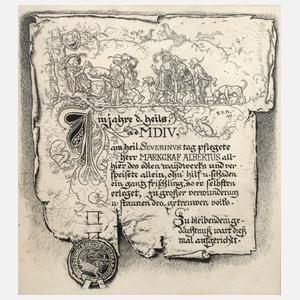 Im jahre d. heils
MDIV,
am heil. SEVERINUS tag pflegete
herr MARKGRAF ALBERTUS all-
hier des edlen waydwerks und ver-
speisete allein, ohn' hilf u. schaden
ein gantz frischling, so er selbsten
erleget, zu großer verwunderung
u. staunen des getreuwen volks.
Zu bleibendem ge-
dächtnuß wart dieß
mal aufgericht.